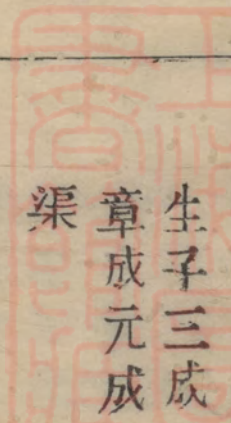 生子三成
章成元成
渠